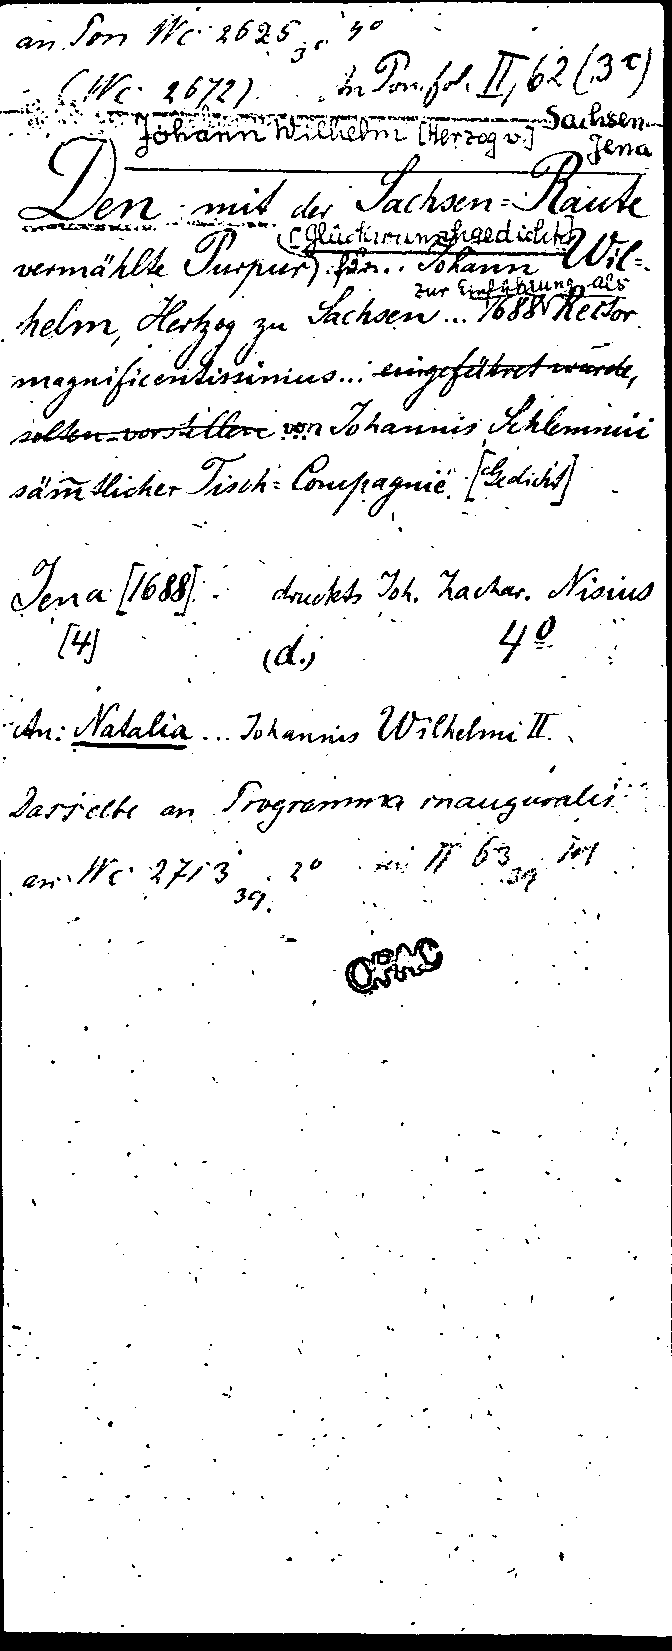 an Pon Wc 2625 3c 4°
(Wc 2672) In Pon. fol. II, 62 (3c)
Johann Wilhelm [Herzog v.] Sachsen-
Jena
Den mit der Sachsen-Raute
[Glückwunschgedicht]
vermählte Purpur) für... Johann Wil-
zur Einführung als
helm, Hertzog zu Sachsen ... 1688 Rector
magnificentissimus... eingeführet wurde,
solten vorstellen von Johannis Schlemmii
säm̅tlicher Tisch-Compagnie. [Gedicht]
Jena [1688]. druckts Joh. Zachar. Nisius
[4] (d.) 4°
An: Natalia ... Johannis Wilhelmi II.
Dasselbe an Programma inauguralis
an Wc 2713 39. 2° II 63 39
OPAC